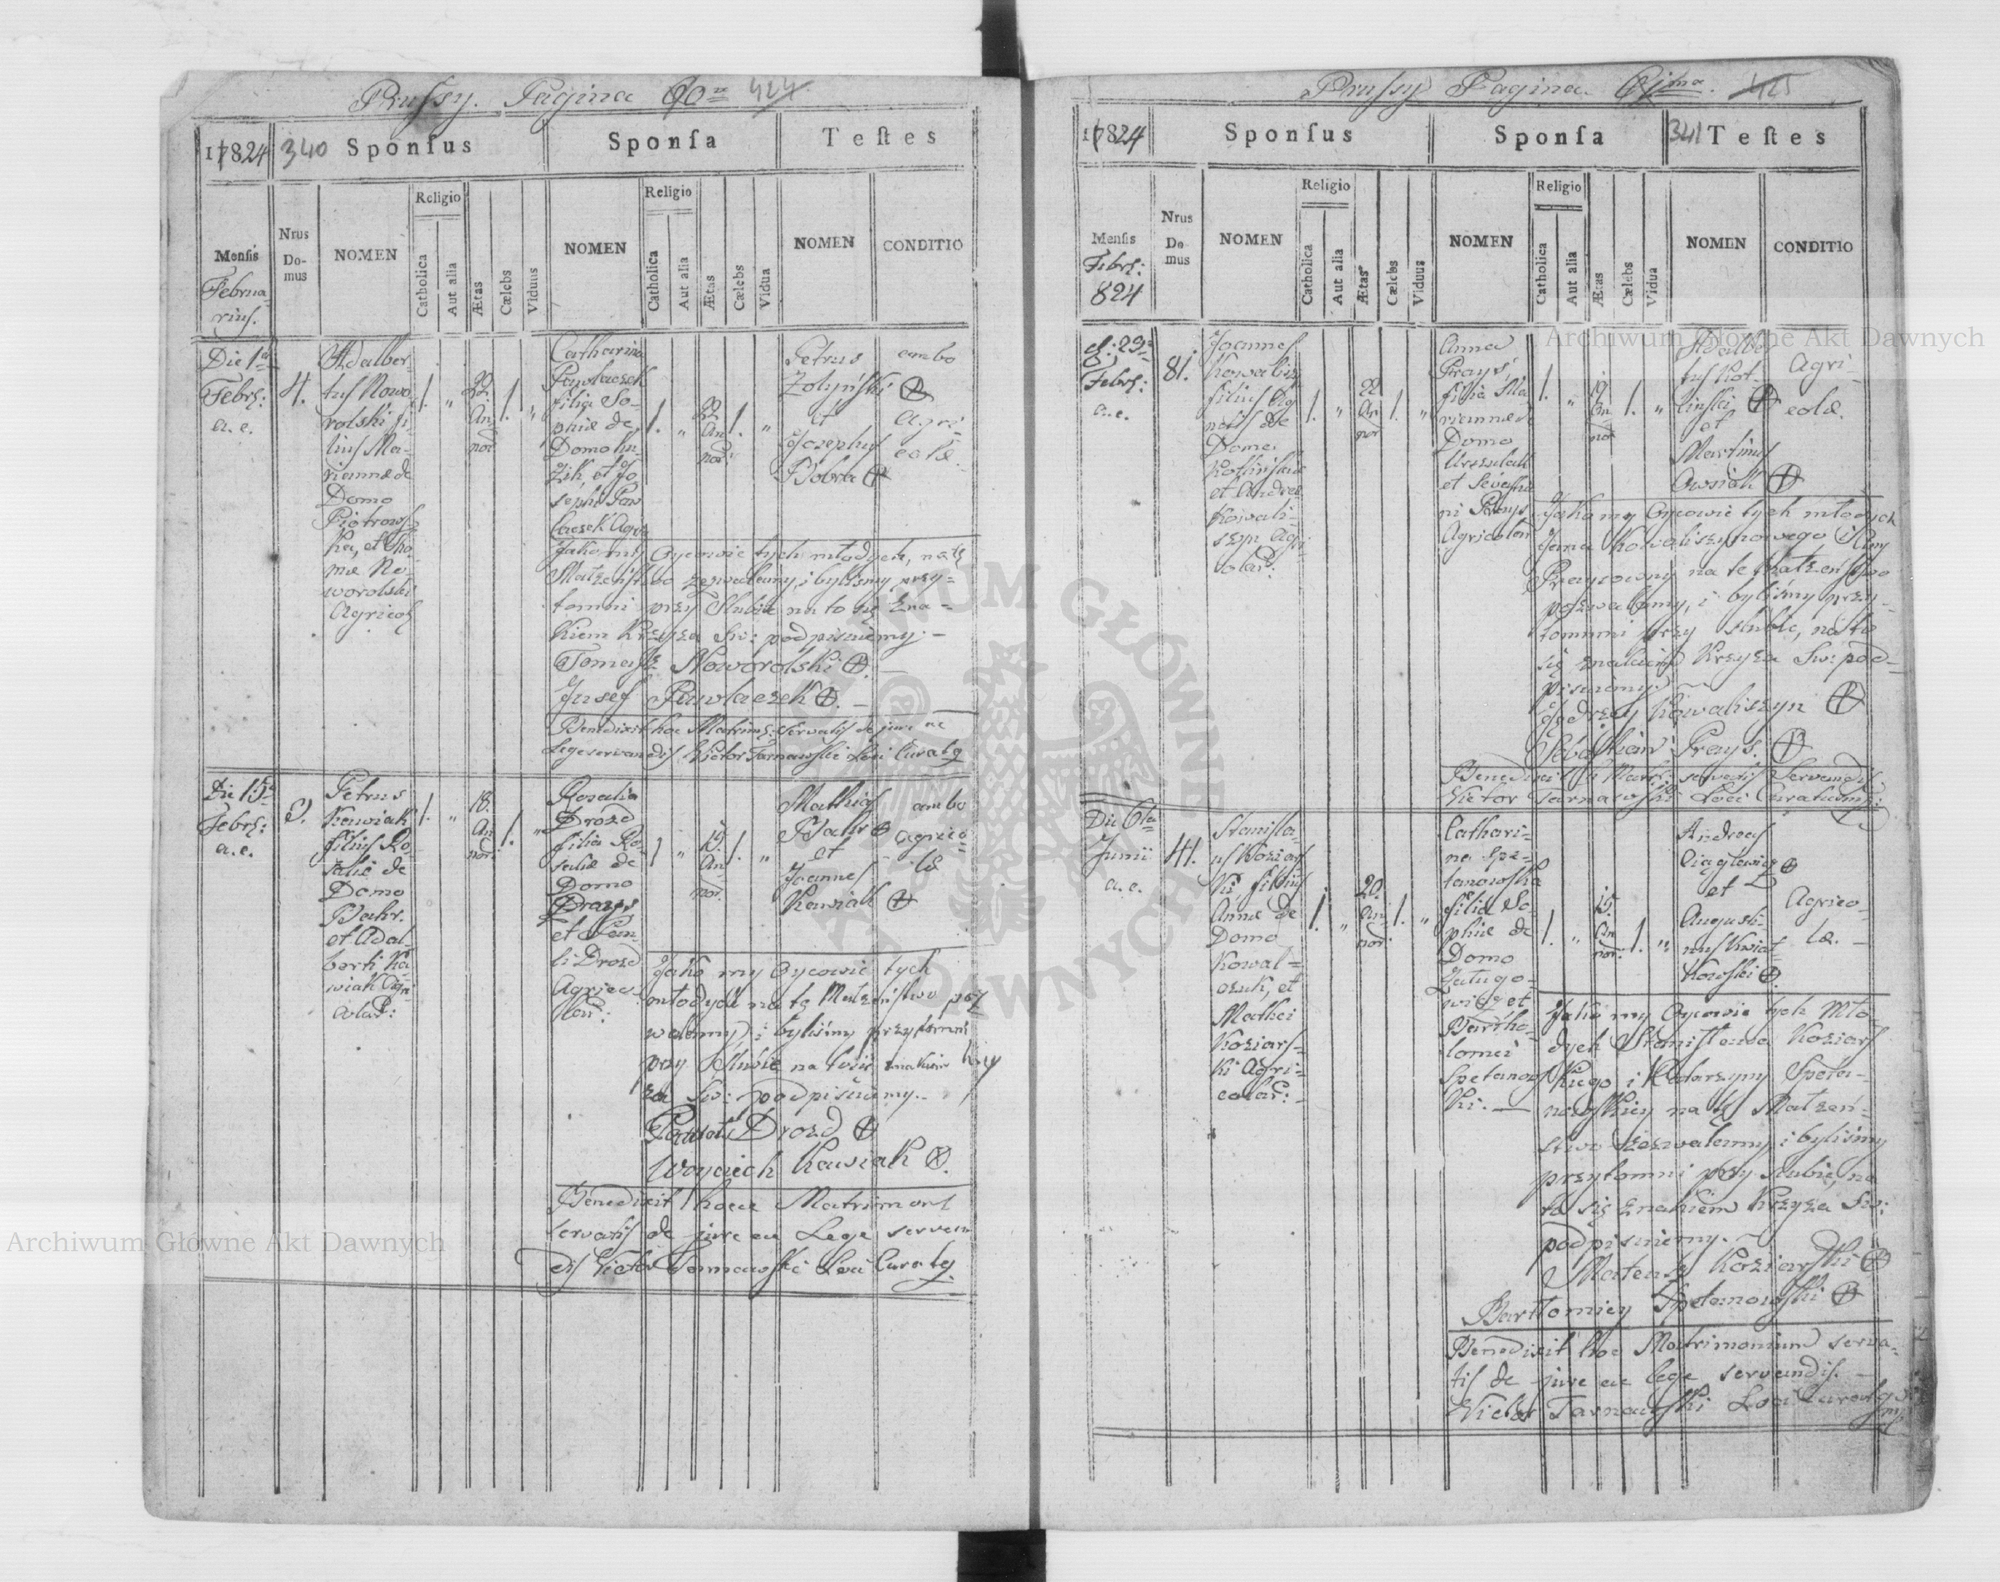 Prussy. Pagina 60ma 424
17824 340 Sponſus Sponſa Teſtes
Religio Religio
Menſis
Nrus
Do-
mus
NOMEN
Catholica
Aut alia
Ætas
Cælebs
Viduus
NOMEN
Catholica
Aut alia
Ætas
Cælebs
Vidua
NOMEN
CONDITIO
Februa-
rius.
Die 1a
Febrs:
a. c.
4.
Adalber
tus Nowo
rolski fi-
lius Ma-
riannæ de
Domo
Piotrows-
ka, et Tho-
mæ No-
worolski
Agricol
1.
„
22.
An
nor
1.
„
Catharina
Pawlaczek
filia So-
phiæ de
Domo
et Jo
sephi Paw
laczek Agri
1.
„
22
An
nor:
1.
„
Petrus
Zolyński
et
Josephus
Bobra
ambo
Agri-
colæ.
Jako my Oycowie tych młodych, na tę
Małżeństwo zezwalamy, i byliśmy przy-
tomni przy Slubie na to się Zna-
kiem Krzyża Sw: podpisuiemy. –
Tomasz Noworolski
Jusef Pawlaczek
Benedixit hoc Matrim: servatis de jure ac
Lege servandis Victor Tarnawski Loci Curatg
Die 15a
Febrs:
a. c.
Petrus
Kawiak
filius Ro-
saliæ de
Domo
Bahr.
et Adal-
berti Ka
wiak Agri
colar:
1.
„
18.
An
nor:
1.
„
Rosalia
Drozd
filia Ro-
saliæ de
Domo
Prays
et
Drozd
Agrico-
lar:
1
„
19.
An
nor.
1.
„
Mathias
Bahr
et
Joannes
Kawiak
ambo
agrico
læ
Jako my Oycowie tych
młodych na tę Małżeństwo poz
walamy, i byliśmy przytomni
przy Slubie na to się znakiem krzy
za Sw: podpisuiemy. –
Drozd
Woyciech Kawiak
Benedixit hocce Matrimon
servatis de jure ac Lege servan
dis Victor Tarnawski Loci Curatg.
Prussy Pagina 61ma. 425
17824 Sponſus Sponſa 341 Teſtes
Religio Religio
Menſis
Febrs:
824
Nrus
Do-
mus
NOMEN
Catholica
Aut alia
Ætas
Cælebs
Viduus
NOMEN
Catholica
Aut alia
Ætas
Cælebs
Vidua
NOMEN
CONDITIO
d: 29a
Febrs:
a. c.
81.
Joannes
Kowaliszyn
filius Ag
netis de
Domo
et Andreæ
Kowali-
szyn Agri
colar:
1.
„
22
An
nor
1.
„
Anna
Prays
filia Ma
riannæ de
Domo
Urszulak
et Sevastia
ni Prays
Agricolar
1.
„
19
An
nor
1.
„
Adalber
tus Kot
linski
et
Martinus
Owsiak
Agri-
colæ.
Jako my Oycowie tych młodych
Jana Kowaliszynowego i Anny
Praysowny na te Małżeństwo
pozwalamy, i byliśmy przy-
tomnni przy slubie, na to
się znakiem Krzyża Sw: pod-
pisuiemy
Jędrzey Kowaliszyn
Sebastian Prays.
Benedixit h Matr: servatis Servandis
Victor Tarnawski Loci Curatus
Die 6ta
Junii
a. c.
41.
Stanisla-
us Koziars
ki filius
Annæ de
Domo
Kowal-
czuk, et
Mathei
Koziars-
ki Agri-
colar: –
1.
„
20.
An
nor:
1.
„
Cathari-
na Spe-
tanowska
filia So-
phiæ de
Domo
wicz et
Bartho-
lomei
Spetanows
ki. –
1.
„
15.
An
nor:
1.
„
Andreas
et
Augusti-
nus Kwiat
kowski
Agrico-
læ. –
Jako my Oycowie tych Mło-
dych Stanisława Koziars
kiego i Katarzyny Speta-
nowskiey na tę Małżeń-
stwo zezwalamy, i byliśmy
przytomni przy slubie, na
to się znakiem Krzyża Sw:
podpisuiemy. –
Mateusz Koziarski
Bartłomiey Spetanowski
Benedixit hoc Matrimonium serva-
tis de jure ac lege servandis. –
Victor Tarnawski Loci Curatg
Archiwum Główne Akt Dawnych
Archiwum Główne Akt Dawnych
ARCHIWUM GŁÓWNE AKT DAWNYCH